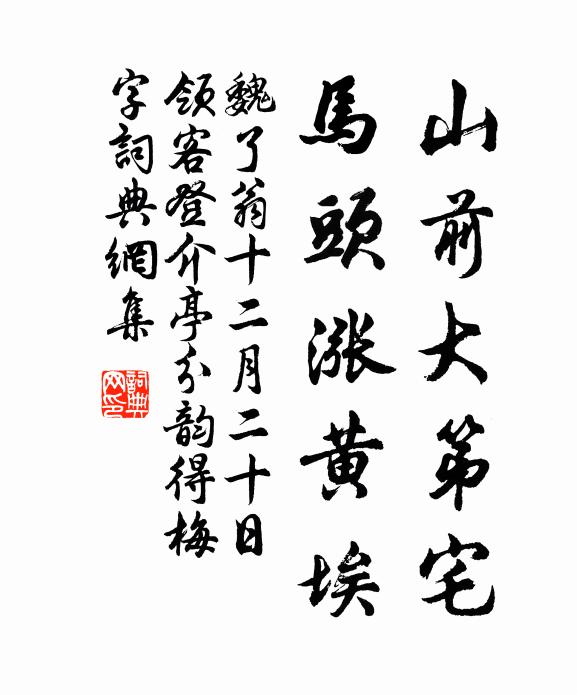 山前大第宅
馬頭漲黄埃
魏了翁十二月二十日
領客登介亭分韵得梅
字詞典網集
詞典网印